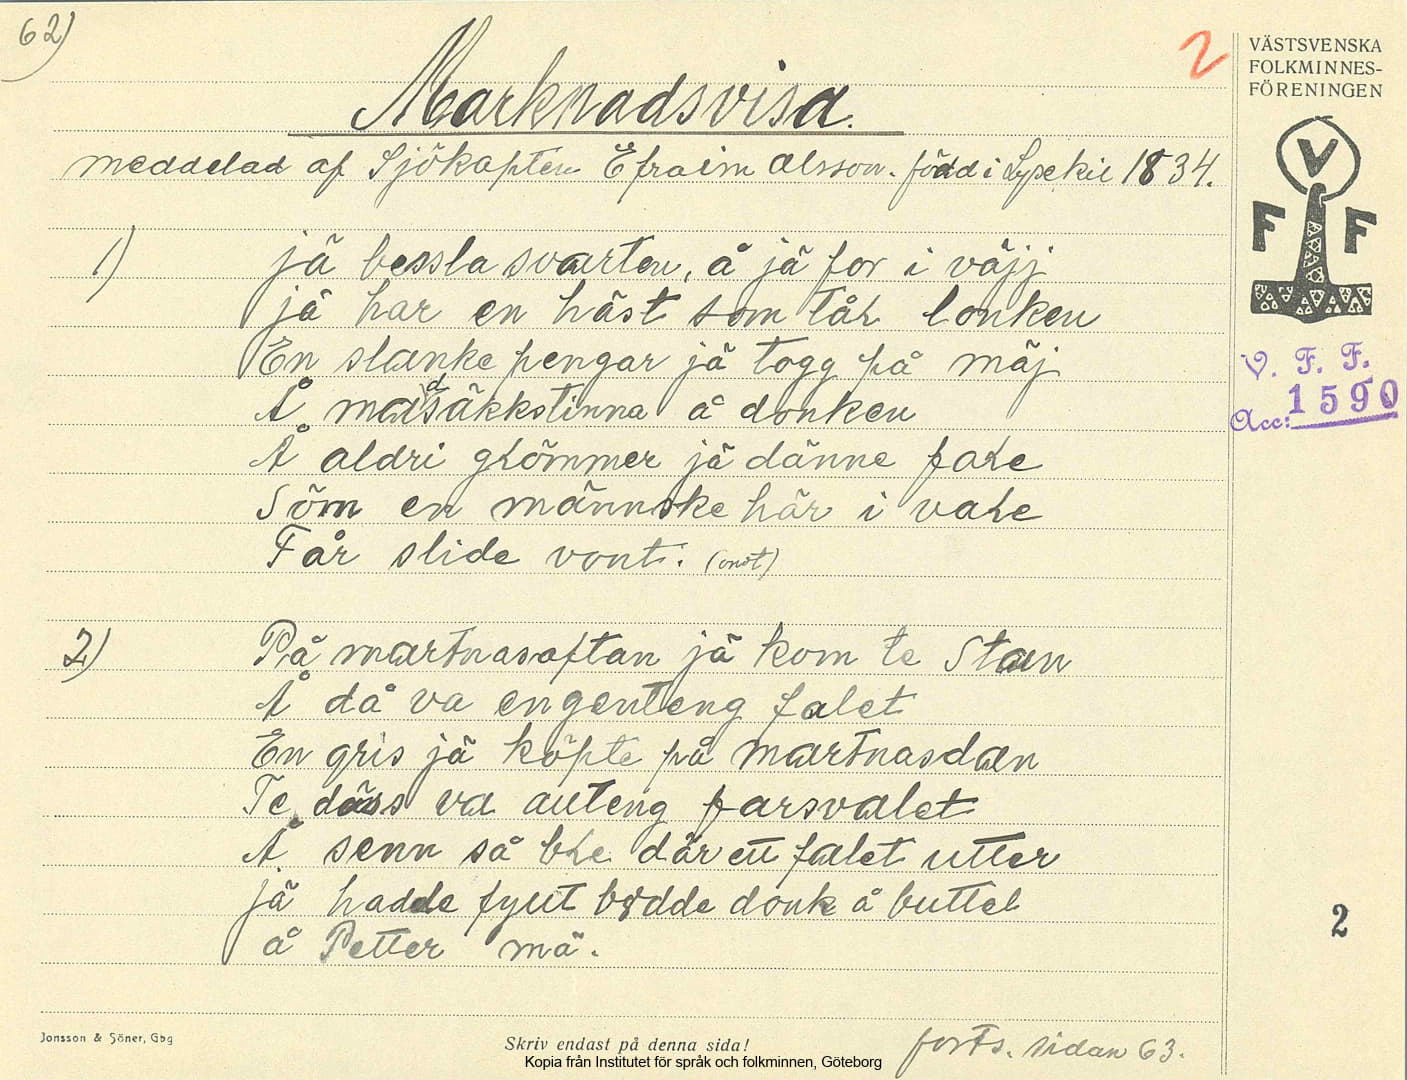 62)
2
VÄSTSVENSKA
FOLKMINNES-
FÖRENINGEN
V
F F
Marknadsvisa.
meddelad af Sjökapten Efraim Olsson. född i Lysekil 1834.
1) jä bessla svarten, å jä for i väjj
jä har en häst som tåL lonken
En slanke pengar jä togg på mäj
Å madsäkkstinna å donken
Å aldri gLömmer jä dänne faLe
Söm en männske här i vaLe
Får slide vont. (ondt)
2) På martnasaftan jä kom te Stan
Å då va engenteng falet
En gris jä köpte på martnasdan
Te däss va auteng farsvalet
Å senn så bLe där ett falet utter
jä hadde fyllt bodde donk å buttel
å Petter mä.
V. F. F.
Acc: 1590
2
Jonsson & Söner, Gbg
Skriv endast på denna sida!
forts. sidan 63.
Kopia från Institutet för språk och folkminnen, Göteborg